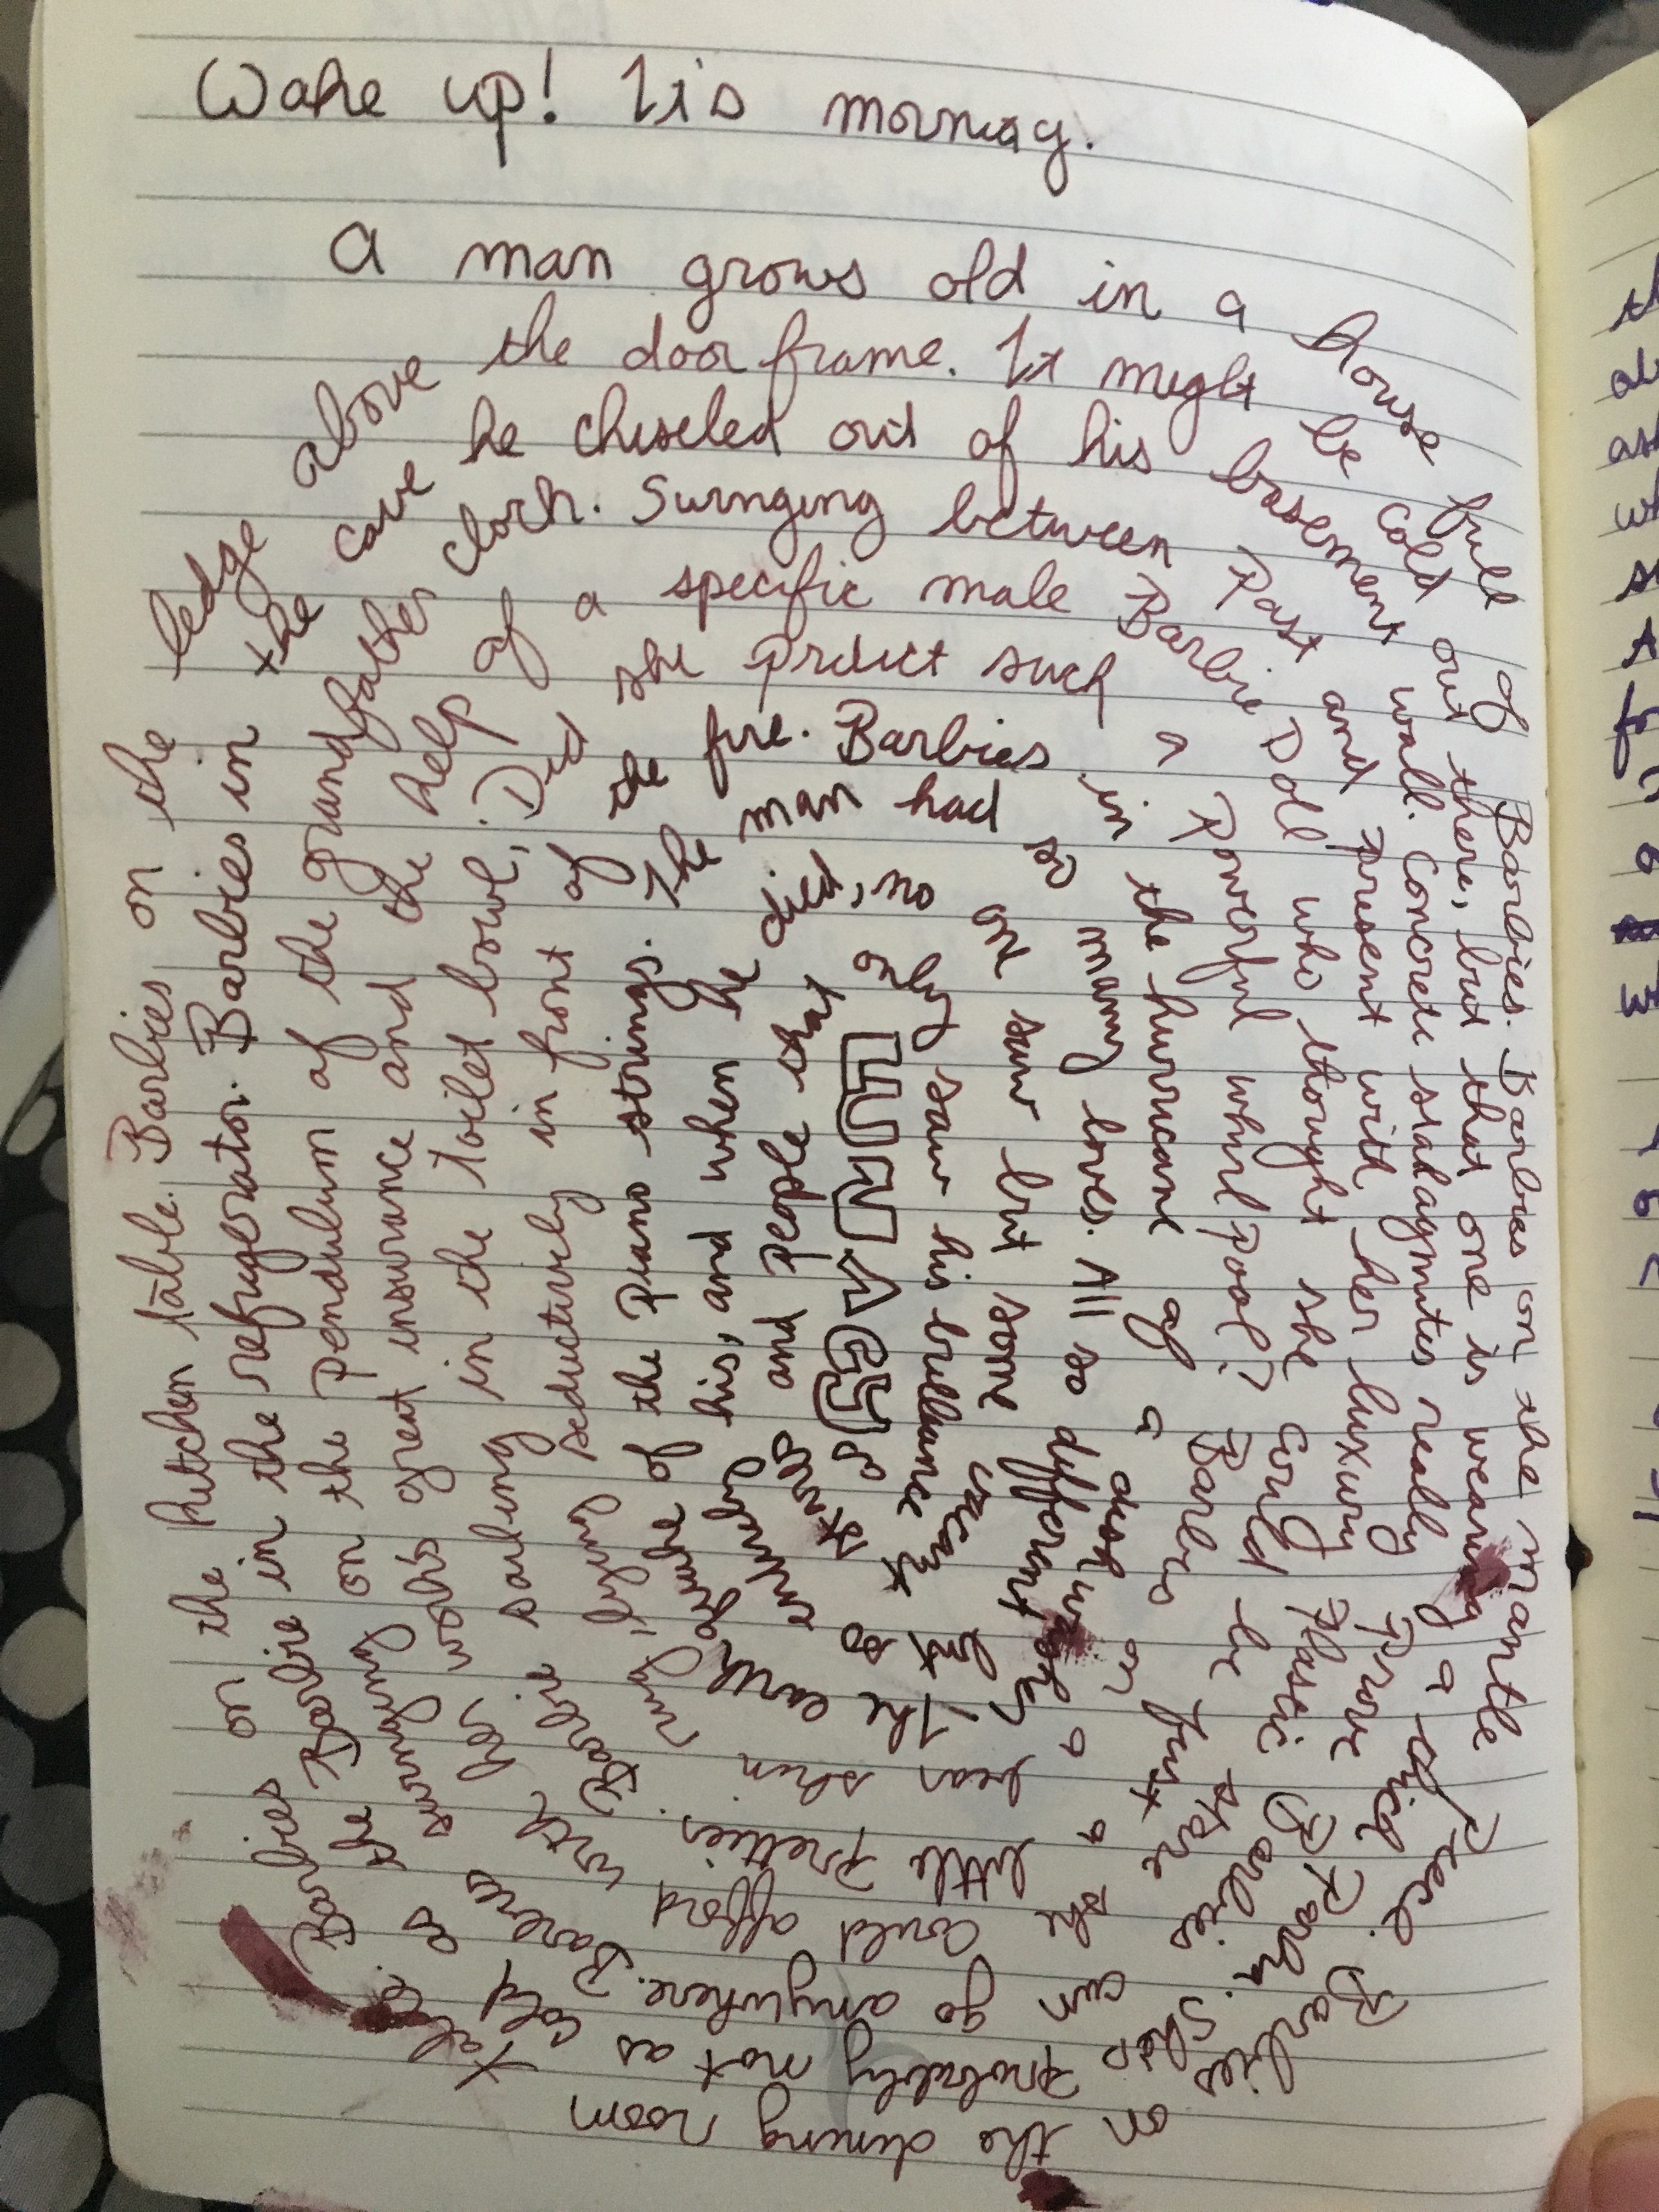 Wake up! It's morning.
A man grows old in a house full of Barbies. Barbies on the mantle piece. Barbies on the dining room
Barbies on the kitchen table. Barbies on the ledge above the door frame. It might be cold out there, but that one is wearing a thick Parka. She's probably not as cold as the
Barbie in the refrigerator. Barbies in the cave he chiseled out of his basement wall. Concrete stalagmites really Prove Barbies can go anywhere. Barbies
swinging on the pendulum of the grandfather clock. Swinging between Past and present with her luxury Plastic she could afford with her
work's great insurance and the help of a specific male Barbie Doll who thought she could be just a little prettier.
Barbie sailing in the toilet bowl; Did she predict such a Powerful whirlpool? Barbie on a bear skin rug,
lying seductively in front of the fire. Barbies in the hurricane of a dishwasher. The earth
of the piano strings. The man had so many loves. All so different but so
of his, and when he died, no one saw but some vacant
and people that only saw his brilliance as
LUNACY